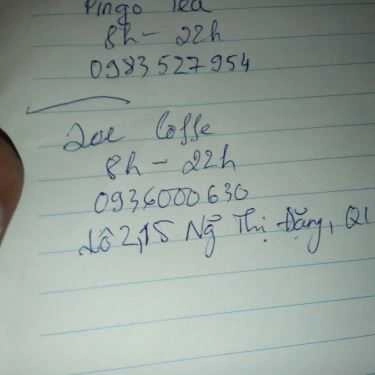 Pingo Tea
8h - 22h
0983527954
Zoe Coffe
8h - 22h
0936000630
Lô 2,15 Ng Thị Đặng, Q1